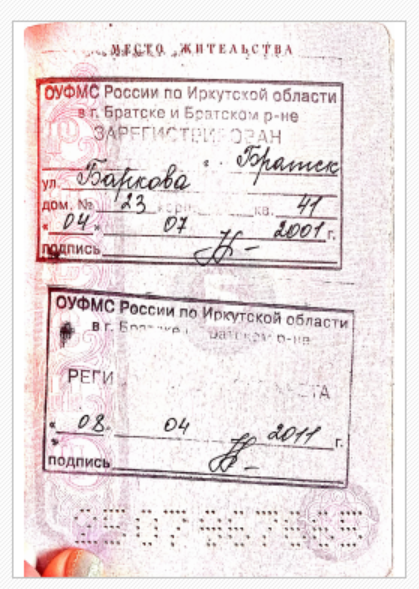 МЕСТО ЖИТЕЛЬСТВА
ОУФМС России по Иркутской области
в г. Братске и Братском р-не
ЗАРЕГИСТРИРОВАН
г. Братск
ул. Баркова
дом. № 23 кв. 41
« 04 » 07 2001 г.
подпись
ОУФМС России по Иркутской области
в г.
РЕГИ
« 08 » 04 2011 г.
подпись